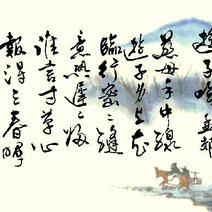 遊子吟 孟郊
慈母手中線
遊子身上衣
臨行密々縫
意恐遲々歸
誰言寸草心
報得三春暉